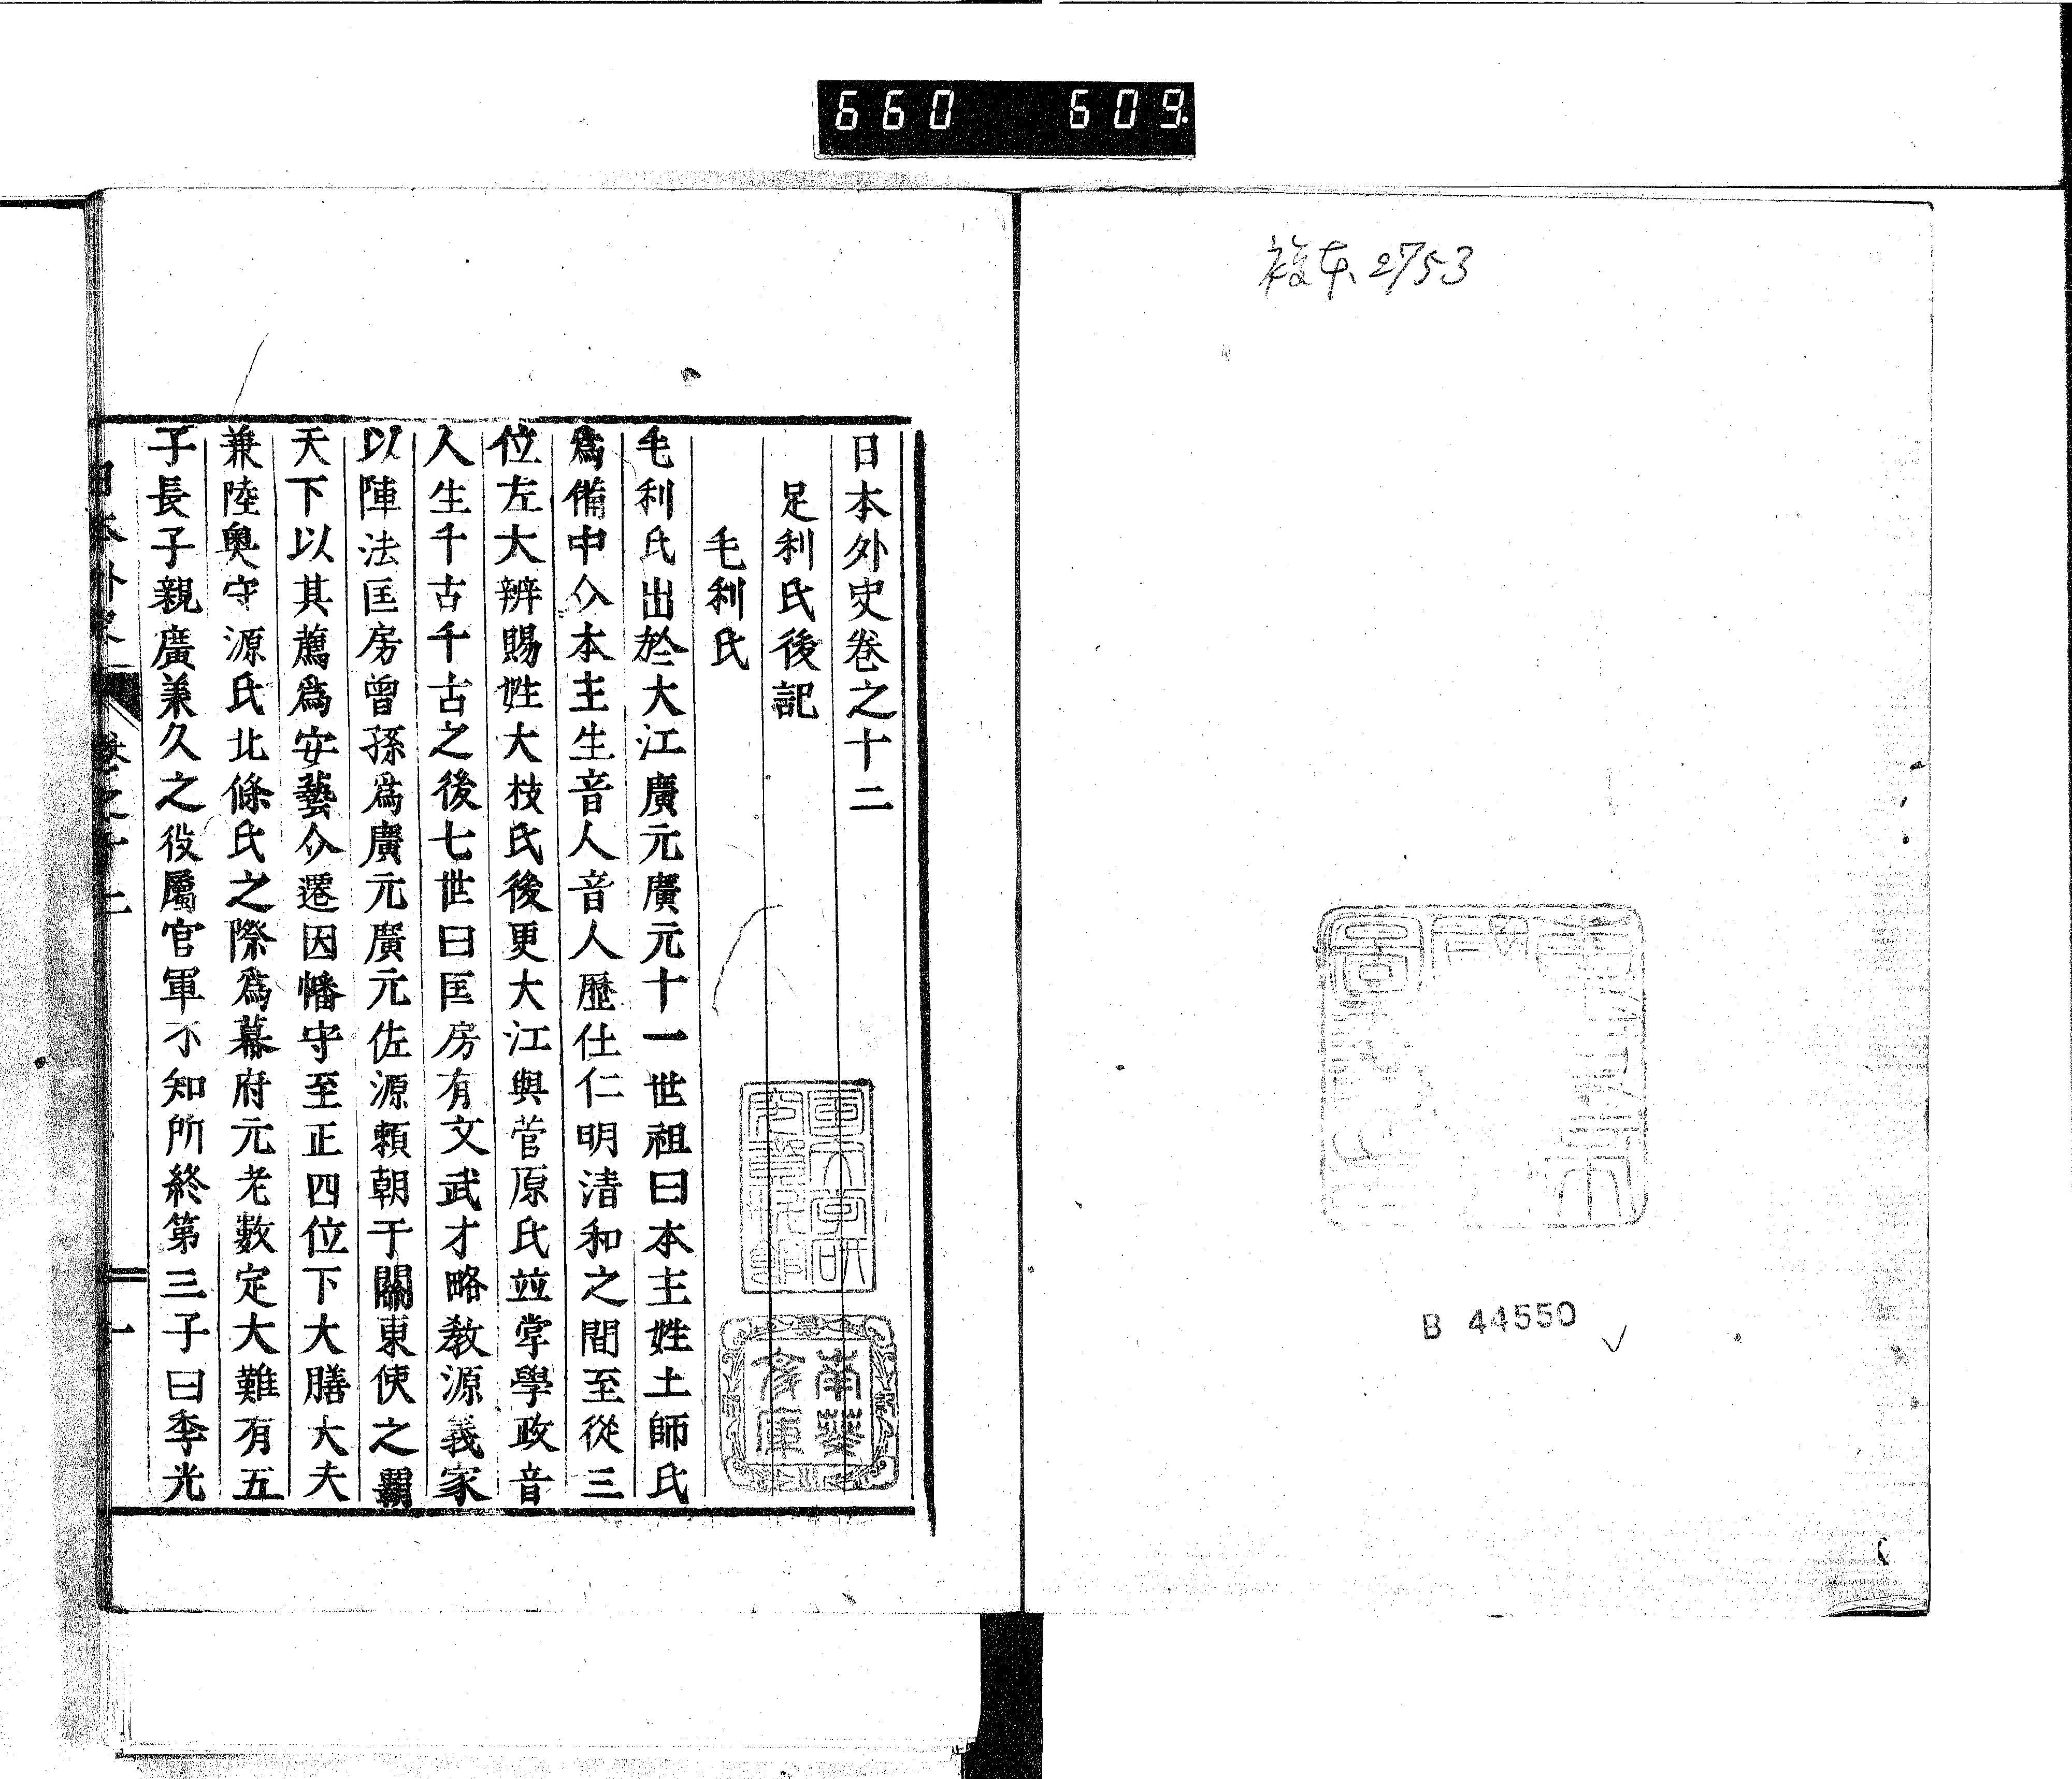 660 609.
複本2753
B 44550
日本外史卷之十二
足利氏後記
毛利氏
毛利氏出於大江廣元廣元十一世祖曰本主姓土師氏
爲備中介本主生音人音人歷仕仁明淸和之間至從三
位左大辨賜姓大枝氏後更大江與菅原氏竝掌學政音
人生千古千古之後七世曰匡房有文武才略敎源義家
以陣法匡房曾孫爲廣元廣元佐源賴朝于關東使之覇
天下以其薦爲安藝介遷因幡守至正四位下大膳大夫
兼陸奧守源氏北條氏之際爲幕府元老數定大難有五
子長子親廣承久之役屬官軍不知所終第三子曰季光
日本外史 卷之十二 一
南葵文庫